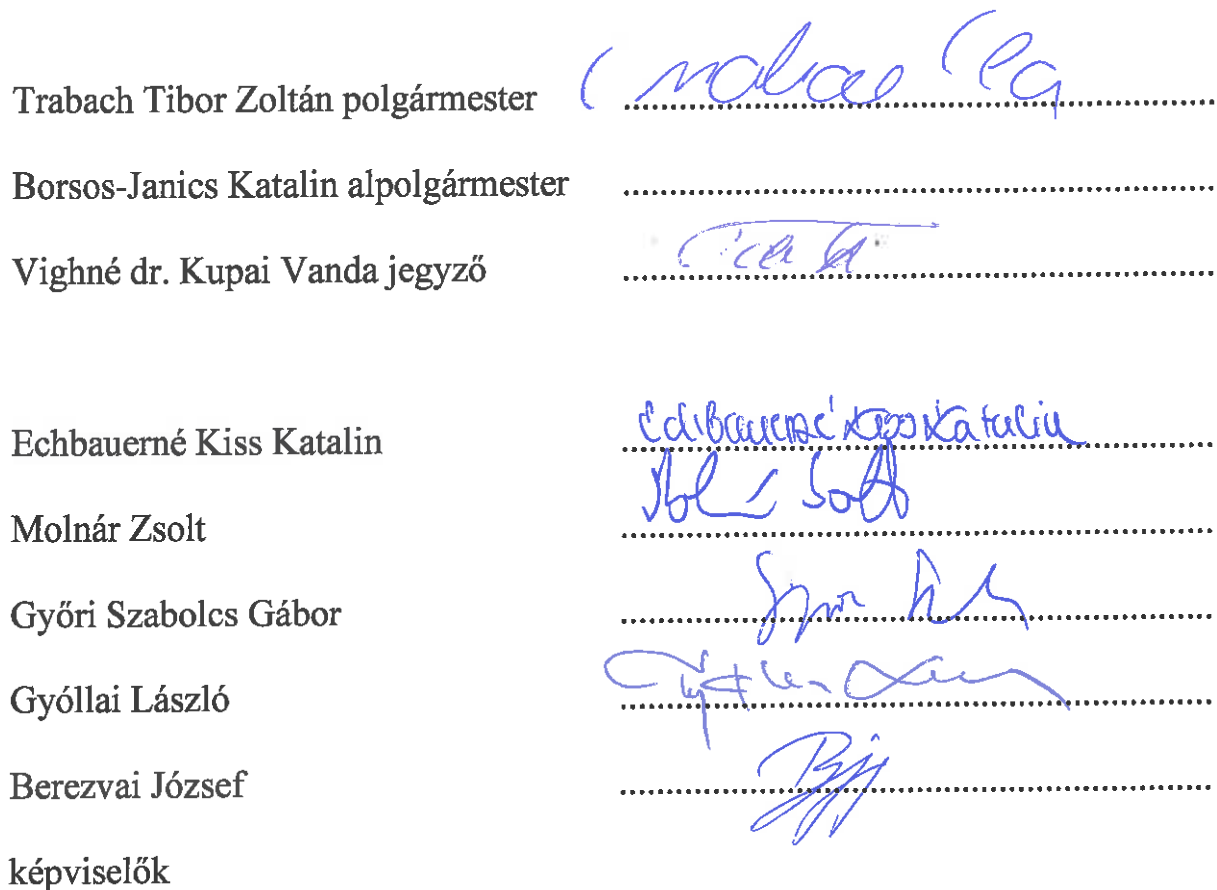 Trabach Tibor Zoltán polgármester ................................
Borsos-Janics Katalin alpolgármester ................................
Vighné dr. Kupai Vanda jegyző ................................
Echbauerné Kiss Katalin Echbauerné Kiss Katalin ................................
Molnár Zsolt ................................
Győri Szabolcs Gábor ................................
Gyóllai László ................................
Berezvai József ................................
képviselők